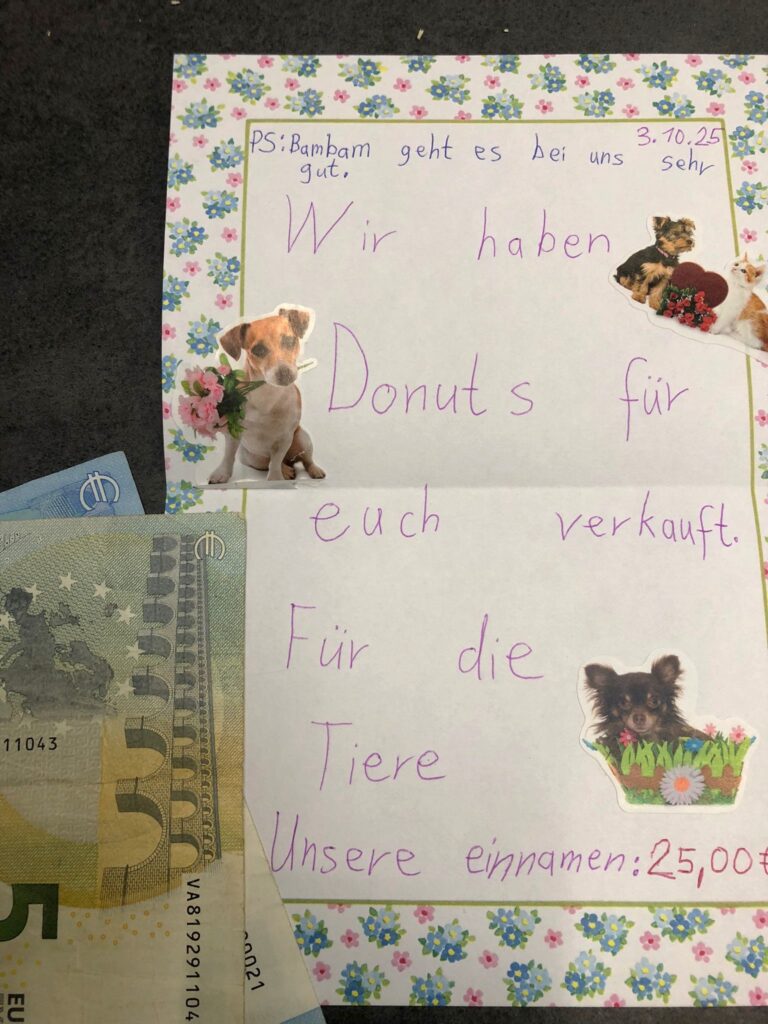 3.10.25
PS: Bambam geht es bei uns sehr
gut.
Wir haben
Donuts für
euch verkauft.
Für die
Tiere
Unsere einnamen: 25,00€
11043
VA819291104
0021
5
EU